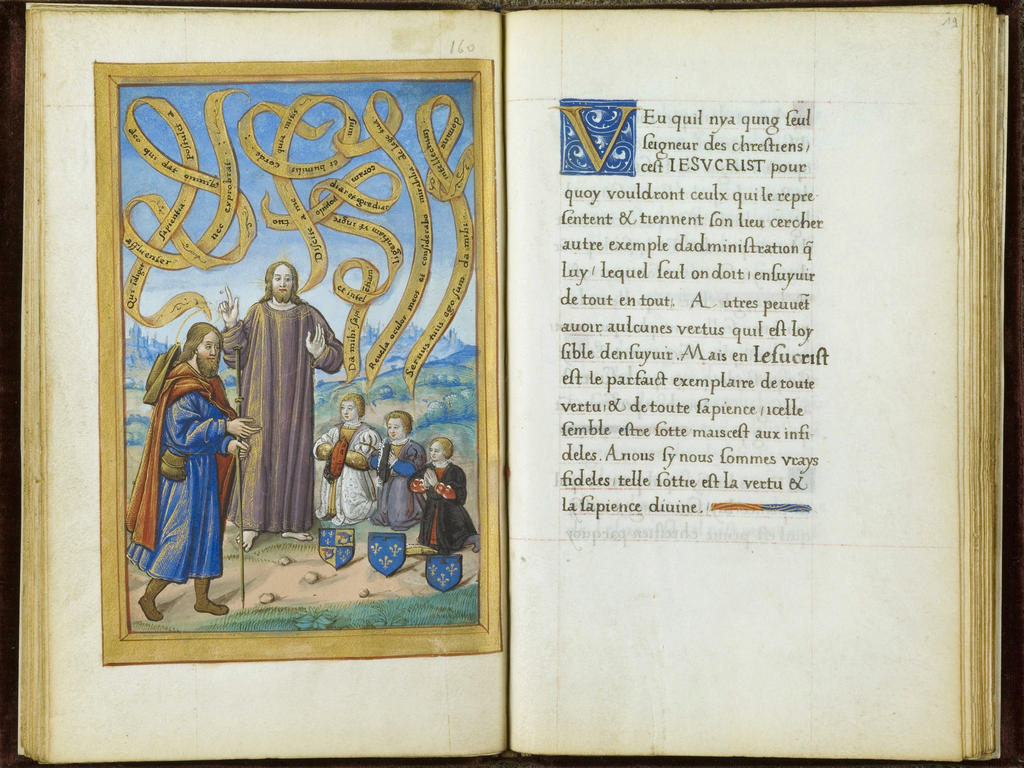 160
Qui idiget
sapientia
postulet a
deo qui dat omnibus
affluenter
nec exprobrat
Discite a me
quia mitis
sum
et humilis corde
Da mihi sapientiam
et intelligentiam ut ingre
diar et egrediar
coram
populo tuo
Revela oculos meos et considerabo mirabilia de lege tua
Servus tuus ego sum da mihi
intellectum
domine
19
VEu quil nya qung seul
seigneur des chrestiens/
cest IESUCRIST pour
quoy vouldront ceulx qui le repre-
sentent & tiennent son lieu cercher
autre exemple dadministration q̃
luy/ lequel seul on doit ensuyuir
de tout en tout. Autres peuuẽt
auoir aulcunes vertus quil est loy
sible densuyuir. Mais en Iesucrist
est le parfaict exemplaire de toute
vertu/ & de toute sapience/ icelle
semble estre sotte mais cest aux infi-
deles. A nous sy nous sommes vrays
fideles/ telle sottie est la vertu &
la sapience diuine.